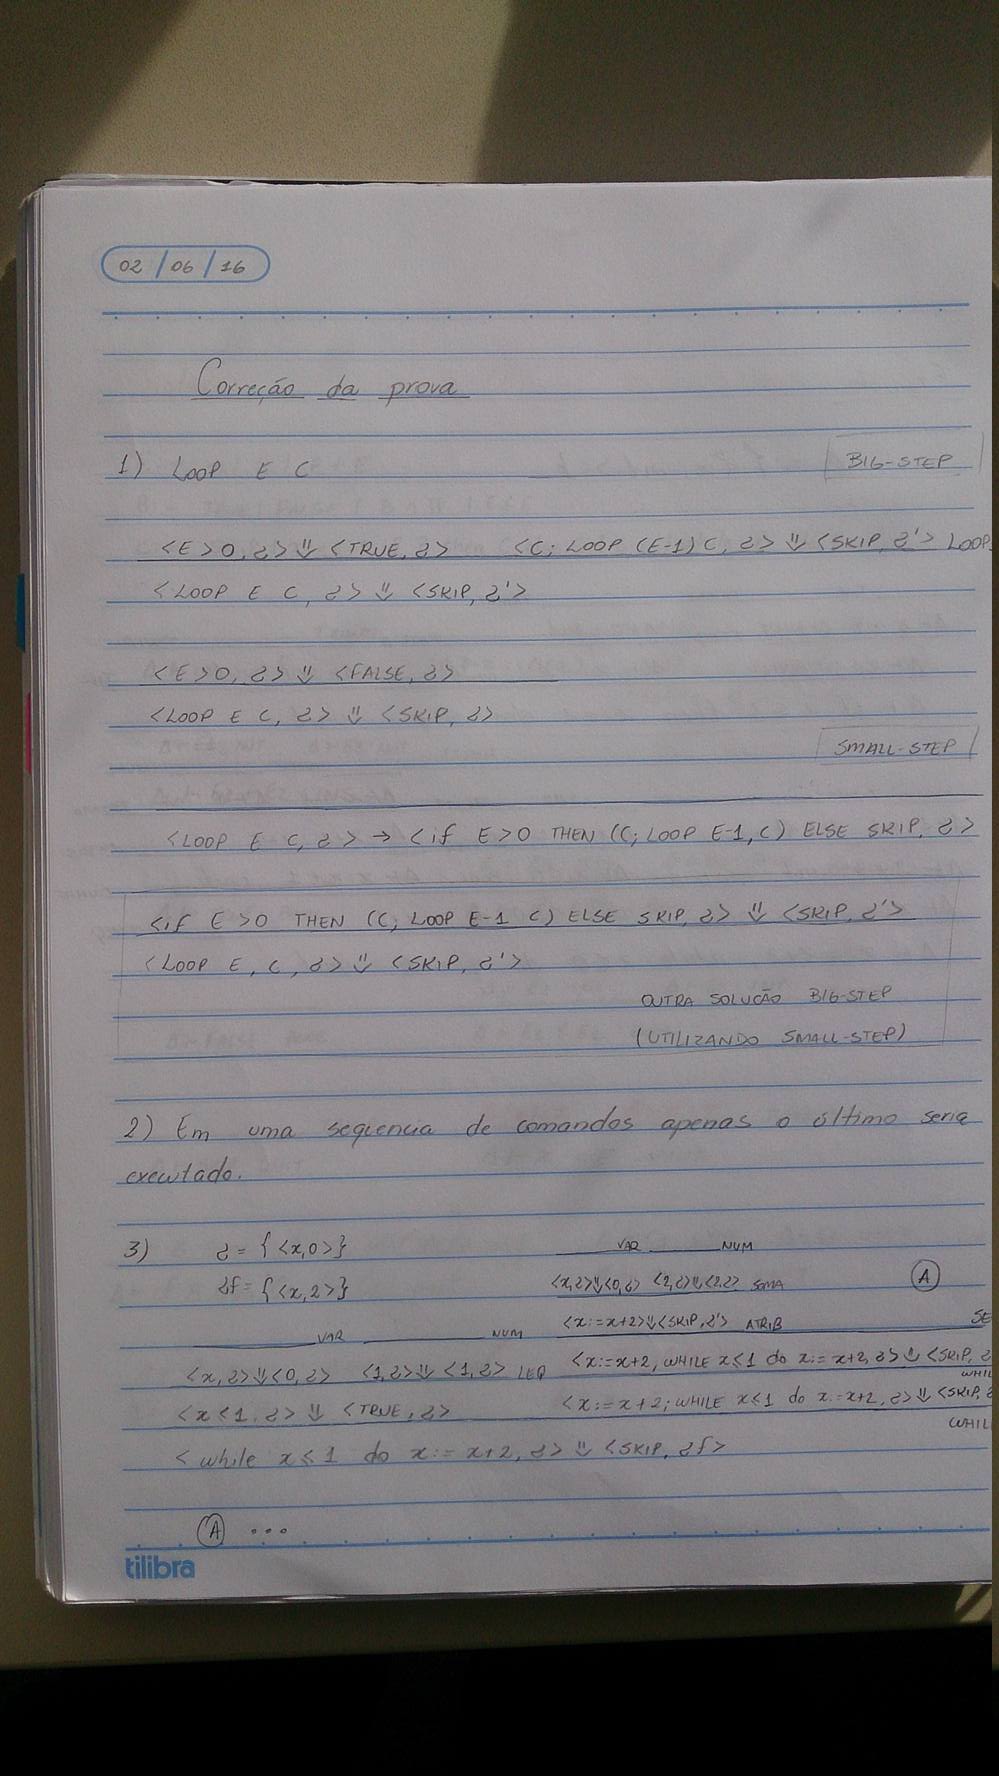 02 / 06 / 16
Correção da prova
1) LOOP E C
BIG-STEP
<E>0, σ> ⇓ <TRUE, σ> <C; LOOP (E-1) C, σ> ⇓ <SKIP, σ'> LOOP
<LOOP E C, σ> ⇓ <SKIP, σ'>
<E>0, σ> ⇓ <FALSE, σ>
<LOOP E C, σ> ⇓ <SKIP, σ>
SMALL-STEP
<LOOP E C, σ> → <if E>0 THEN (C; LOOP E-1, C) ELSE SKIP, σ>
<if E>0 THEN (C; LOOP E-1 C) ELSE SKIP, σ> ⇓ <SKIP, σ'>
<LOOP E, C, σ> ⇓ <SKIP, σ'>
OUTRA SOLUCÃO BIG-STEP
(UTILIZANDO SMALL-STEP)
2) Em uma seqüencia de comandos apenas o último seria
executado.
3) σ = {<x,0>}
σf = {<x,2>}
VAR NUM
<x,σ>⇓<0,σ> <2,σ>⇓<2,σ> SOMA
A
<x:=x+2>⇓<SKIP,σ'> ATRIB
SE
VAR NUM
<x,σ>⇓<0,σ> <1,σ>⇓<1,σ> LEQ
<x:=x+2, WHILE x≤1 do x:=x+2,σ>⇓<SKIP,σ
WHIL
<x≤1,σ> ⇓ <TRUE,σ>
<x:=x+2; WHILE x≤1 do x:=x+2,σ>⇓<SKIP,σ
WHIL
<while x≤1 do x:=x+2,σ>⇓<SKIP,σf>
A ...
tilibra